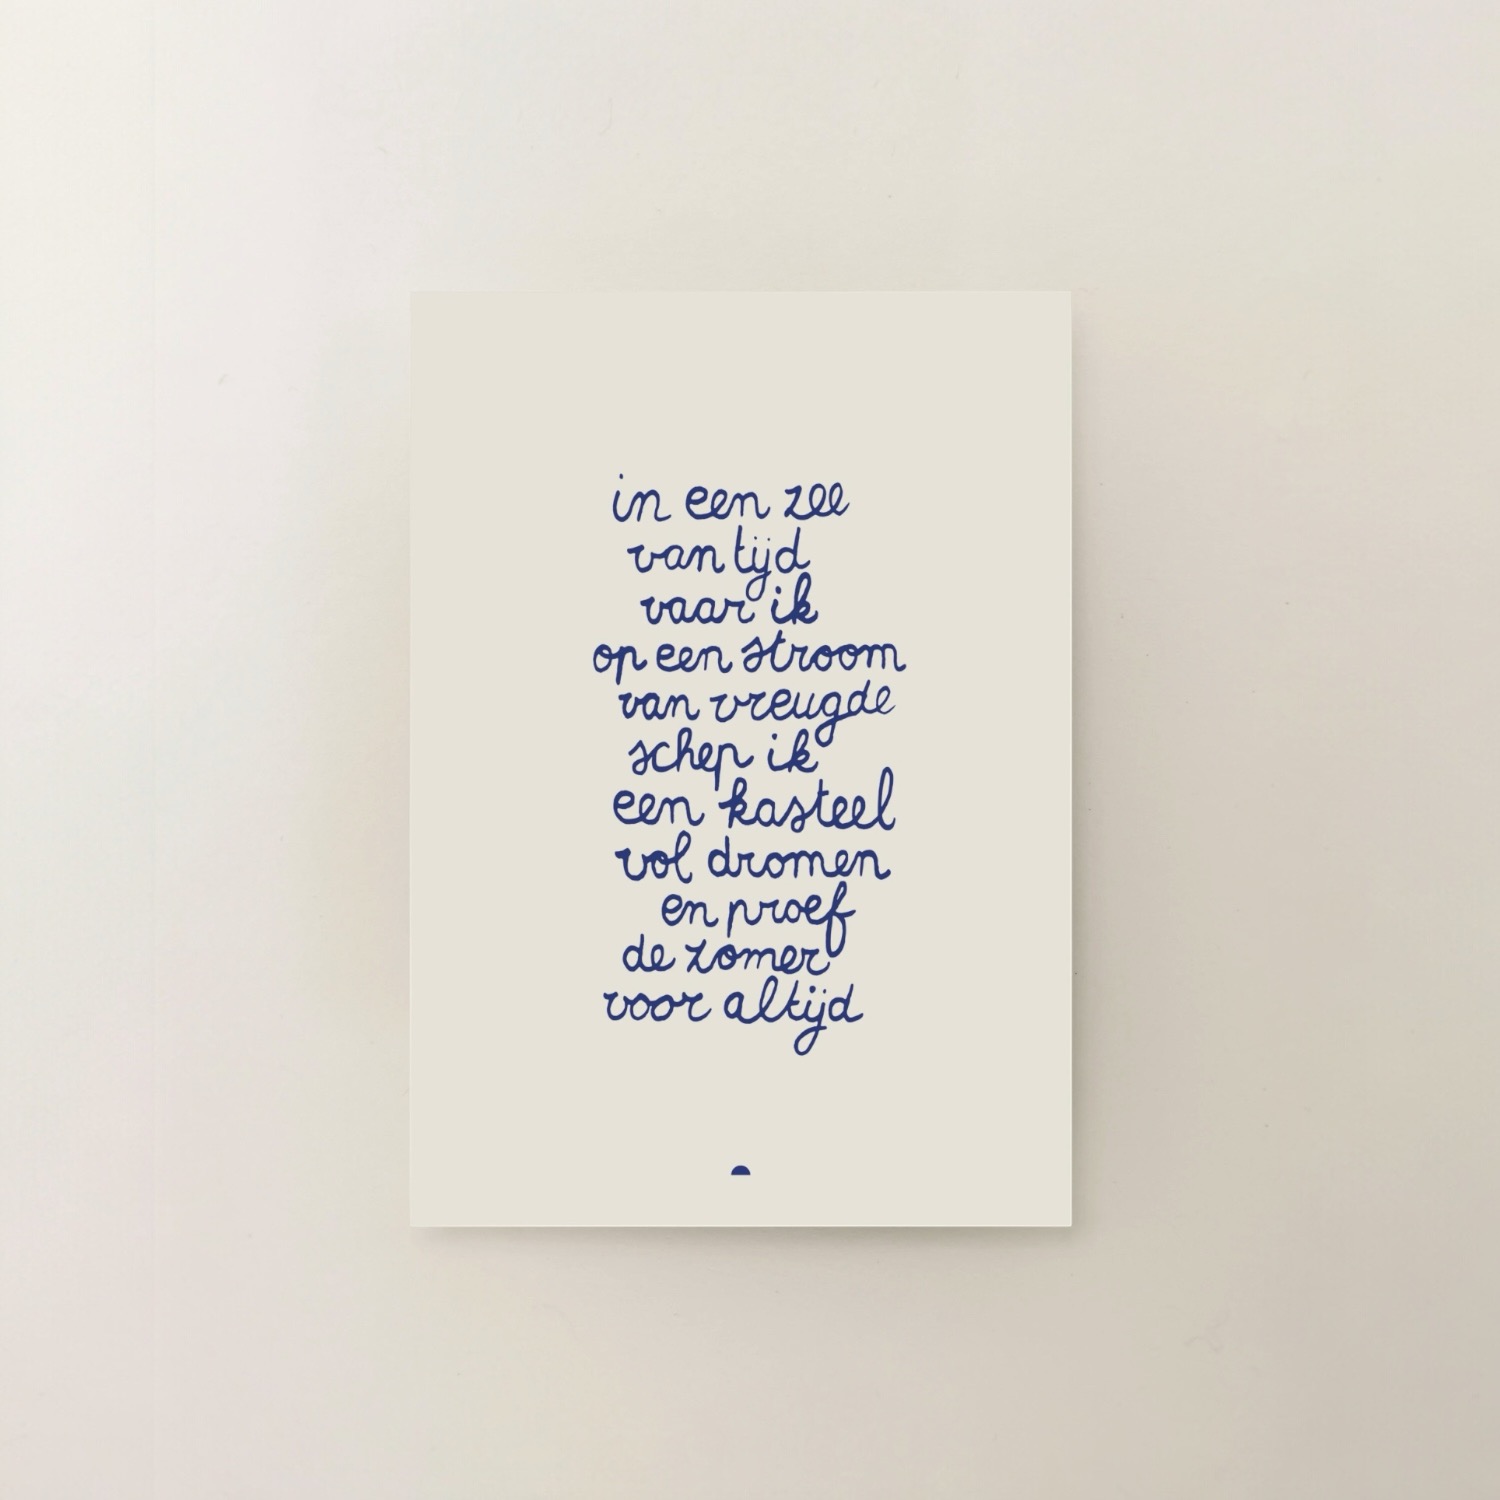 in een zee
van tijd
vaar ik
op een stroom
van vreugde
schep ik
een kasteel
vol dromen
en proef
de zomer
voor altijd